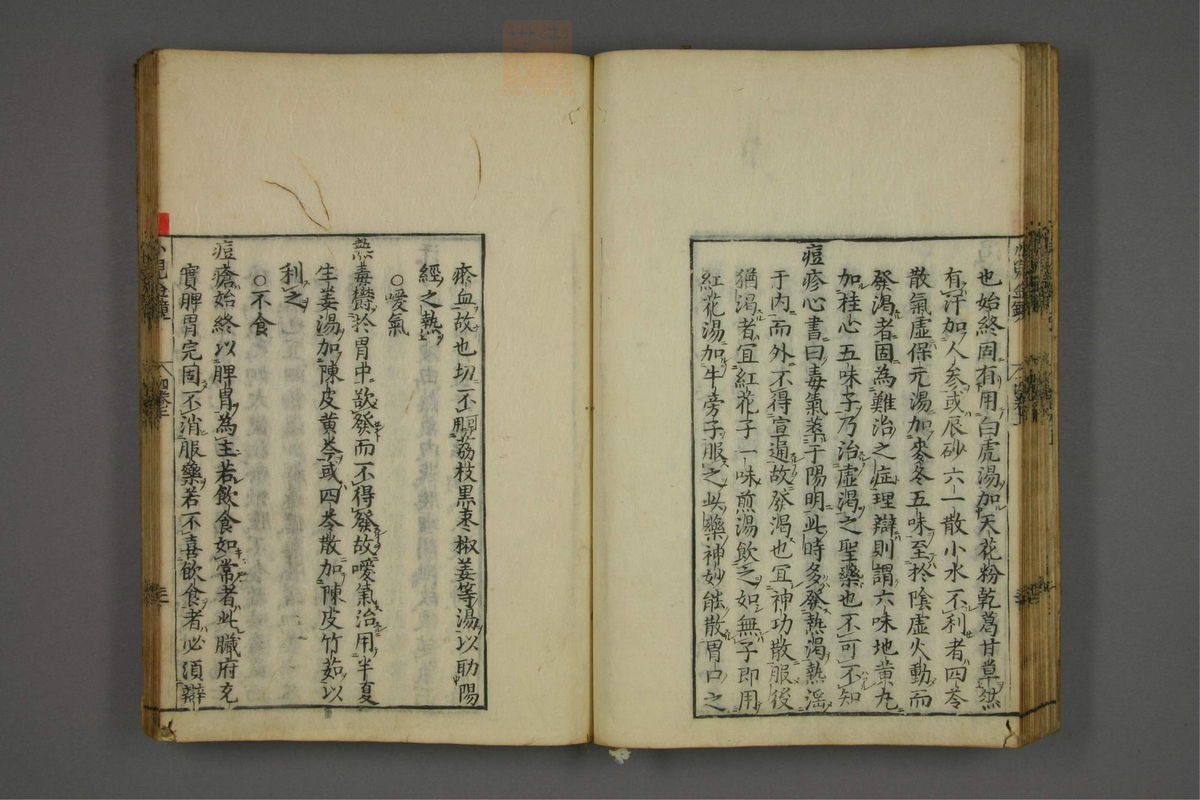 也始終固有用白虎湯加天花粉乾葛甘草然
有汗加人參或辰砂六一散小水不利者四苓
散氣虛保元湯加麥冬五味至於陰虛火動而
發渴者固為難治之症理辯則謂六味地黄丸
加桂心五味子乃治虛渴之聖藥也不可不知
痘疹心書曰毒氣惹于陽明此時多發熱渴熱滛
于内而外不得宣通故發渴也宜神功散服後
猶渴者宜紅花子一味煎湯飲之如無子即用
紅花湯加牛旁子服之此藥神妙能散胃口之
瘀血故也切不可用荔枝黒枣椒姜等湯以助陽
經之熱
○噯氣
熱毒欝於胃中欲發而不得發故噯氣治用半夏
生姜湯加陳皮黄芩或四苓散加陳皮竹茹以
利之
○不食
痘瘡始終以脾胃為主若飲食如常者此臟府充
實脾胃完固不消服藥若不喜飲食者必須辯